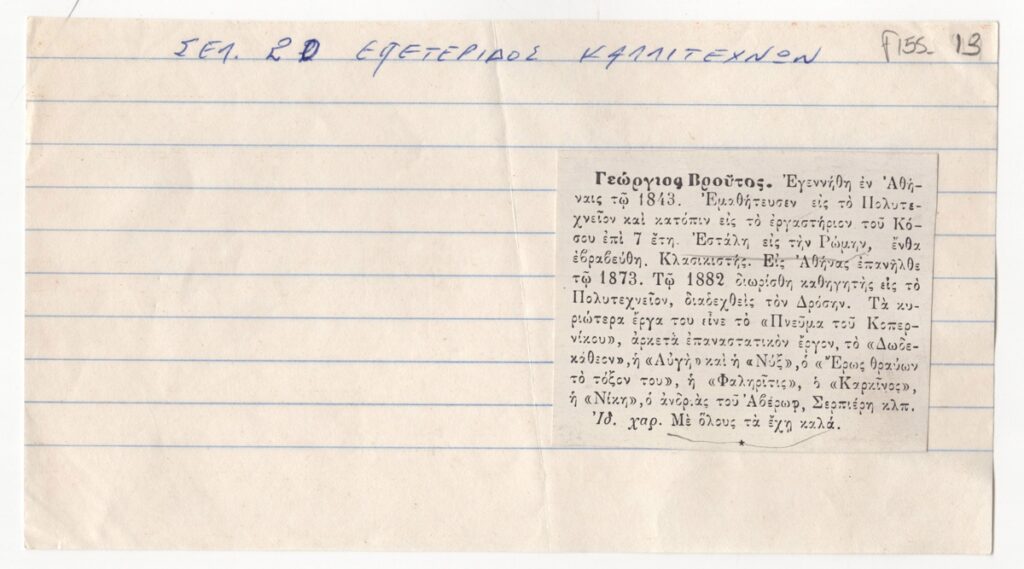 ΣΕΛ. 20 ΕΠΕΤΕΡΙΔΟΣ ΚΑΛΛΙΤΕΧΝΩΝ
Γ155- 13
Γεώργιος Βροῦτος. Ἐγεννήθη ἐν Ἀθή-
ναις τῷ 1843. Ἐμαθήτευσεν εἰς τὸ Πολυτε-
χνεῖον καὶ κατόπιν εἰς τὸ ἐργαστήριον τοῦ Κό-
σου ἐπὶ 7 ἔτη. Ἐστάλη εἰς τὴν Ρώμην, ἔνθα
ἐβραβεύθη. Κλασικιστής. Εἰς Ἀθήνας ἐπανῆλθε
τῷ 1873. Τῷ 1882 διωρίσθη καθηγητὴς εἰς τὸ
Πολυτεχνεῖον, διαδεχθεὶς τὸν Δρόσην. Τὰ κυ-
ριώτερα ἔργα του εἶνε τὸ «Πνεῦμα τοῦ Κοπερ-
νίκου», ἀρκετὰ ἐπαναστατικὸν ἔργον, τὸ «Δωδε-
κάθεον», ἡ «Αὐγὴ» καὶ ἡ «Νὺξ», ὁ «Ἔρως θραύων
τὸ τόξον του», ἡ «Φαληρῖτις», ὁ «Καρκῖνος»,
ἡ «Νίκη», ὁ ἀνδριὰς τοῦ Ἀβέρωφ, Σερπιέρη κλπ.
Ἰδ. χαρ. Μὲ ὅλους τὰ ἔχῃ καλά.
*